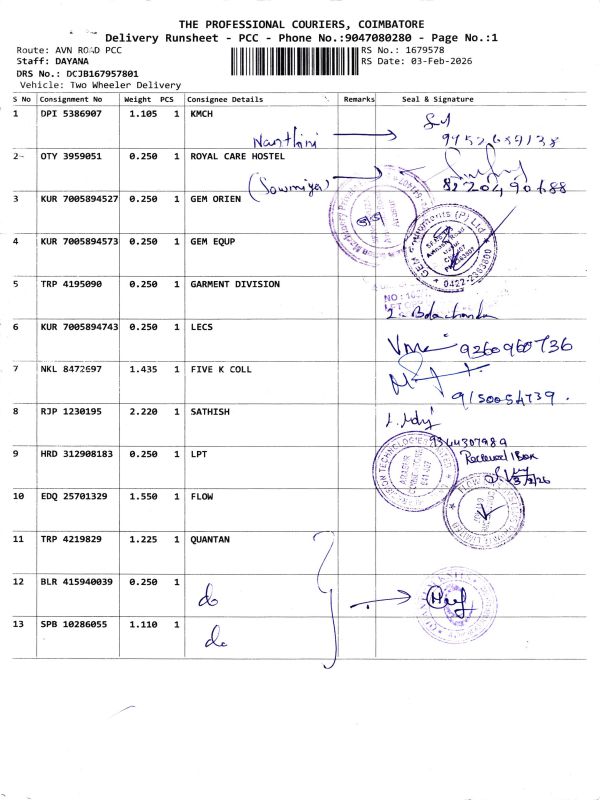 THE PROFESSIONAL COURIERS, COIMBATORE
Delivery Runsheet - PCC - Phone No.:9047080280 - Page No.:1
Route: AVN ROAD PCC
RS No.: 1679578
Staff: DAYANA
RS Date: 03-Feb-2026
DRS No.: DCJB167957801
Vehicle: Two Wheeler Delivery
S No Consignment No Weight PCS Consignee Details Remarks Seal & Signature
1 DPI 5386907 1.105 1 KMCH
Nanthini
2 OTY 3959051 0.250 1 ROYAL CARE HOSTEL
(Sowmiya)
8220490688
3 KUR 7005894527 0.250 1 GEM ORIEN
4 KUR 7005894573 0.250 1 GEM EQUP
0422-2363800
5 TRP 4195090 0.250 1 GARMENT DIVISION
6 KUR 7005894743 0.250 1 LECS
9360960736
7 NKL 8472697 1.435 1 FIVE K COLL
9150054739.
8 RJP 1230195 2.220 1 SATHISH
9344307989
9 HRD 312908183 0.250 1 LPT
Received 1 Box
3/2/26
10 EDQ 25701329 1.550 1 FLOW
11 TRP 4219829 1.225 1 QUANTAN
12 BLR 415940039 0.250 1
do
13 SPB 10286055 1.110 1
do